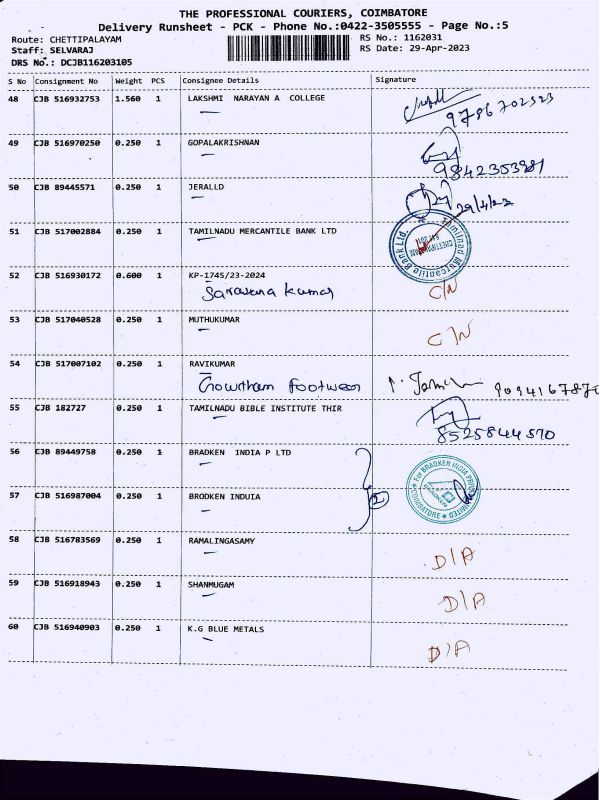 THE PROFESSIONAL COURIERS, COIMBATORE
Delivery Runsheet - PCK - Phone No.:0422-3505555 - Page No.:5
Route: CHETTIPALAYAM RS No.: 1162031
Staff: SELVARAJ RS Date: 29-Apr-2023
DRS No.: DCJB116203105
S No Consignment No Weight PCS Consignee Details Signature
48 CJB 516932753 1.560 1 LAKSHMI NARAYAN A COLLEGE
9786702323
49 CJB 516970250 0.250 1 GOPALAKRISHNAN
9842353981
50 CJB 89445571 0.250 1 JERALLD
29/4/23
51 CJB 517002884 0.250 1 TAMILNADU MERCANTILE BANK LTD
Tamilnad Mercantile Bank Ltd.
52 CJB 516930172 0.600 1 KP-1745/23-2024
Saravana kumar C/N
53 CJB 517040528 0.250 1 MUTHUKUMAR
C/N
54 CJB 517007102 0.250 1 RAVIKUMAR
Gowtham Footwear
55 CJB 182727 0.250 1 TAMILNADU BIBLE INSTITUTE THIR
8525844570
56 CJB 89449758 0.250 1 BRADKEN INDIA P LTD
For BRADKEN INDIA PRIVATE LIMITED
COIMBATORE
BRADKEN
57 CJB 516987004 0.250 1 BRODKEN INDUIA
2
58 CJB 516783569 0.250 1 RAMALINGASAMY
D/A
59 CJB 516918943 0.250 1 SHANMUGAM
D/A
60 CJB 516940903 0.250 1 K.G BLUE METALS
D/A